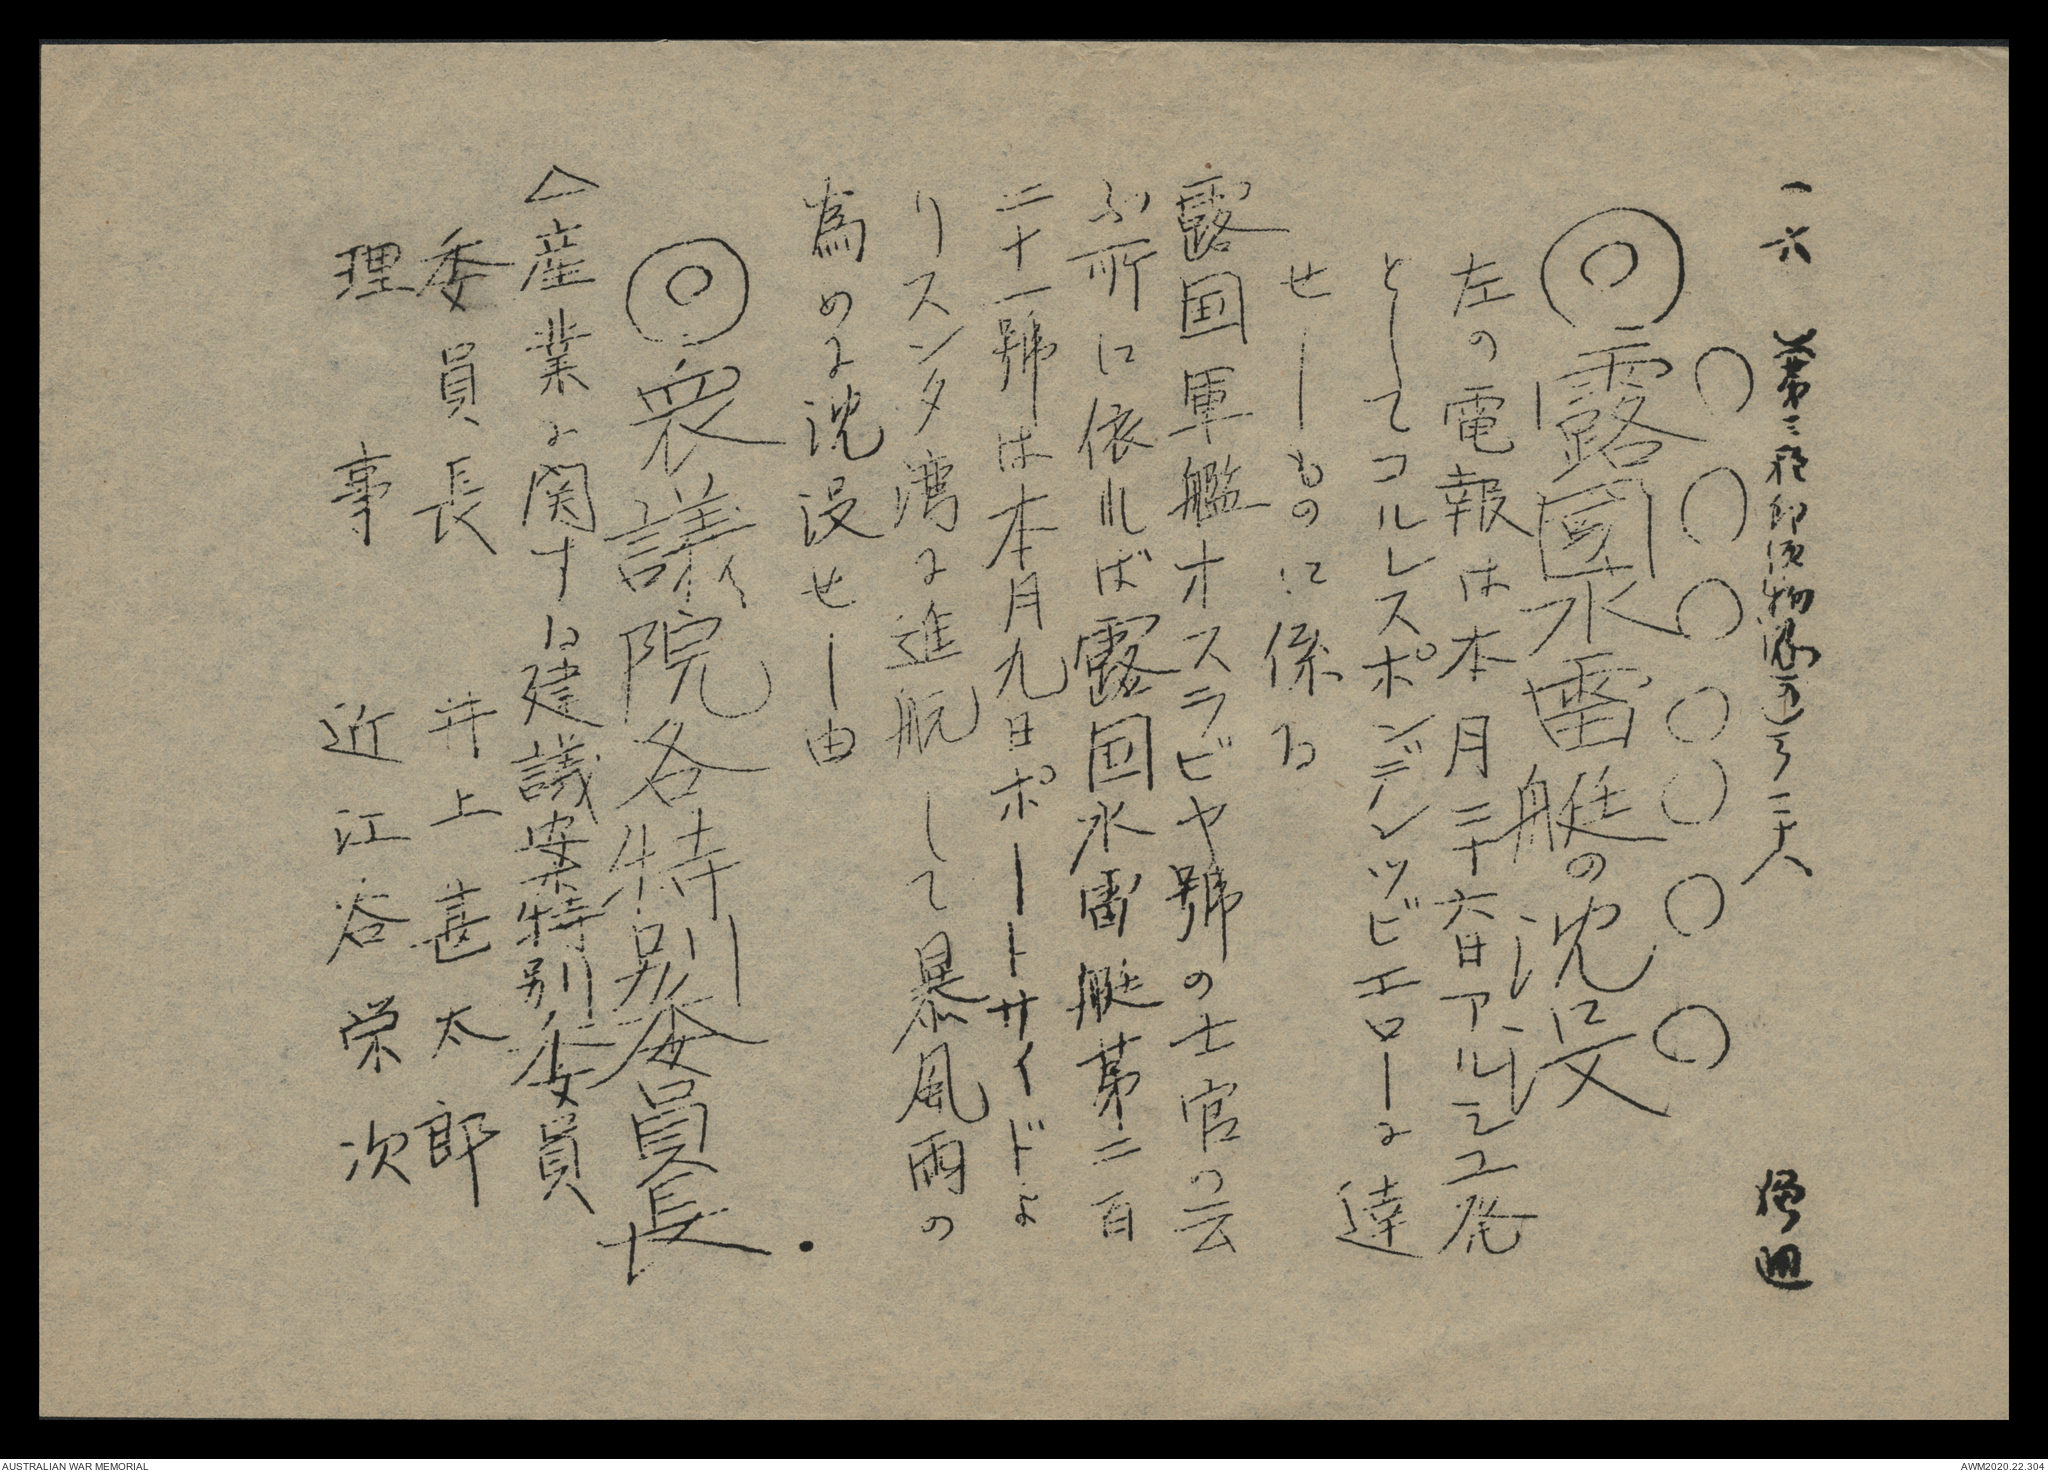 一六 (第三種郵便物認可) 二十八
◎露國水雷艇の沈没
左の電報は本月三十六日アルジェ発
としてコルレスポンデンツビエローに達
せしものに係る
露国軍艦オスラビヤ號の士官の云
ふ所に依れば露国水雷艇第二百
二十一號は本月九日ポートサイドよ
りスンダ湾に進航して暴風雨の
為めに沈没せし由
◎衆議院各特別委員長
△産業に関する建議案特別委員
委員長 井上甚太郎
理事 近江谷栄次
AUSTRALIAN WAR MEMORIAL
AWM2020.22.304